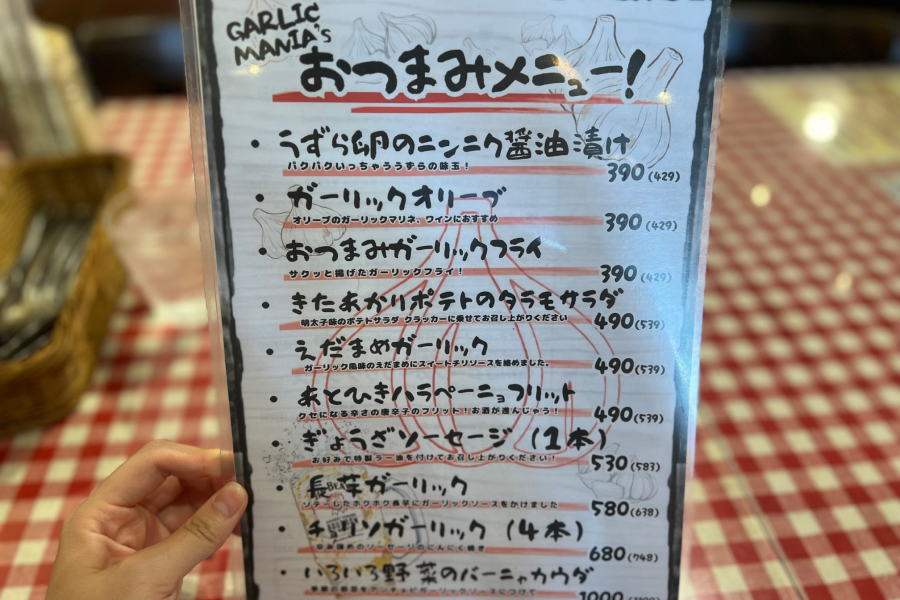 GARLIC
MANIA's
おつまみメニュー!
・うずら卵のニンニク醤油漬け
パクパクいっちゃううずらの味玉!
390(429)
・ガーリックオリーブ
オリーブのガーリックマリネ、ワインにおすすめ
390(429)
・おつまみガーリックフライ
サクッと揚げたガーリックフライ!
390(429)
・きたあかりポテトのタラモサラダ
明太子味のポテトサラダ クラッカーに乗せてお召し上がりください
490(539)
・えだまめガーリック
ガーリック風味のえだまめにスイートチリソースを絡めました。
490(539)
・あとひきハラペーニョフリット
クセになる辛さの唐辛子のフリット!お酒が進んじゃう!
490(539)
・ぎょうざソーセージ(1本)
お好みで特製ラー油を付けてお召し上がりください!
530(583)
・長芋ガーリック
ソテーしたホクホク長芋にガーリックソースをかけました
580(638)
・チョリソガーリック(4本)
辛み強めのソーセージのにんにく焼き
680(748)
・いろいろ野菜のバーニャカウダ
季節の野菜をアンチョビガーリックソースにつけて
1000